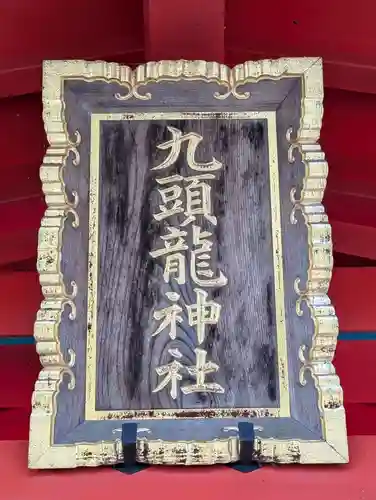 九頭龍神社